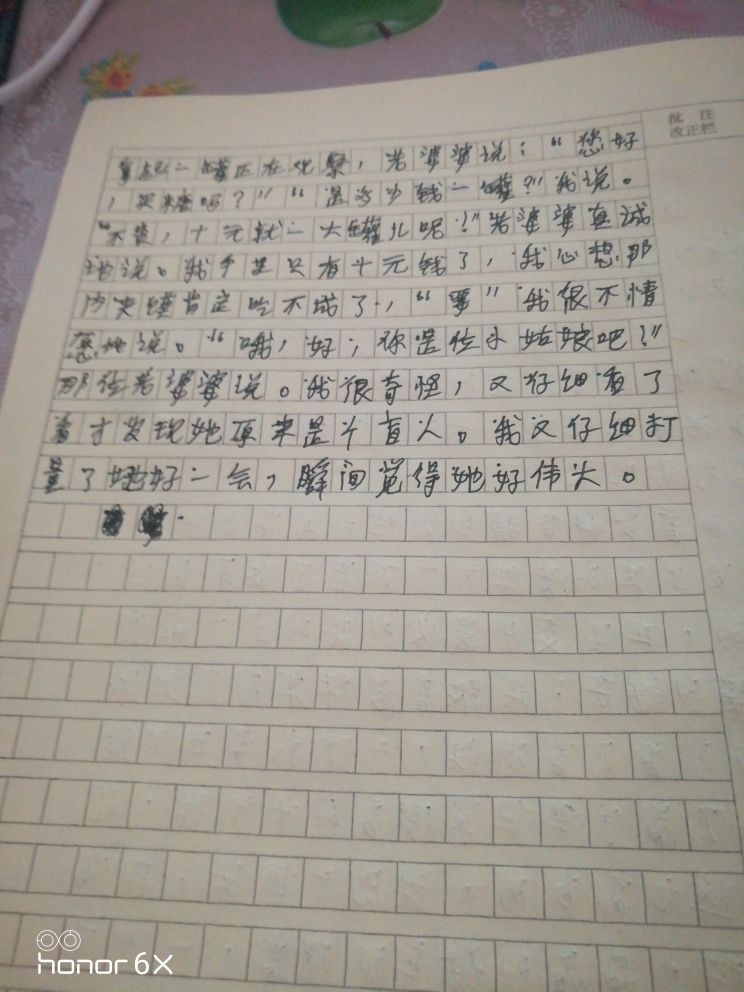 批 注
改正栏
拿起一罐正在观察，老婆婆说：“您好
，买糖吗？”“是多少钱一罐？”我说。
“不贵，十元就一大罐儿呢！”老婆婆真诚
地说。我手里只有十元钱了，我心想那
肯定吃不成了，“要”我很不情
愿地说。“哦，好，你是位小姑娘吧！”
那位老婆婆说。我很奇怪，又仔细看了
看才发现她原来是个盲人。我又仔细打
量了她好一会，瞬间觉得她好伟大。
honor 6X